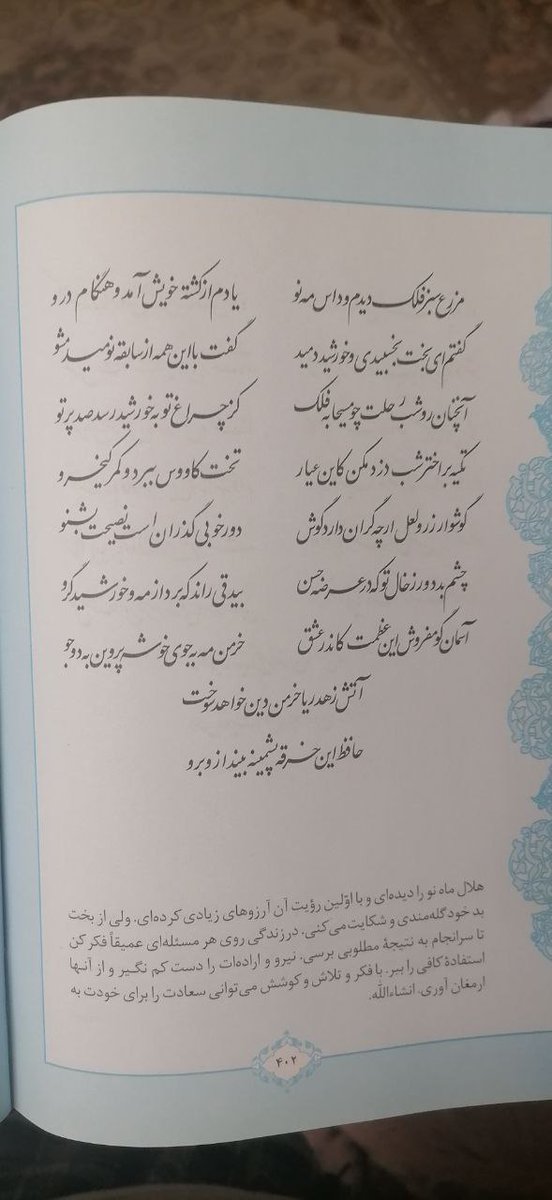 مزرع سبز فلک دیدم و داس مه نو یادم از کشتهٔ خویش آمد و هنگام درو
گفتم ای بخت بخسبیدی و خورشید دمید گفت با این همه از سابقه نومید مشو
آنچنان رو شب رحلت چو مسیحا به فلک کز چراغ تو به خورشید رسد صد پرتو
تکیه بر اختر شب دزد مکن کاین عیار تخت کاووس ببرد و کمر کیخسرو
گوشوار زر و لعل ارچه گران دارد گوش دور خوبی گذران است نصیحت بشنو
چشم بد دور ز خال تو که در عرصه حسن بیدقی راند که برد از مه و خورشید گرو
آسمان گو مفروش این عظمت کاندر عشق خرمن مه به جوی خوشه پروین به دو جو
آتش زهد ریا خرمن دین خواهد سوخت
حافظ این خرقه پشمینه بینداز و برو
هلال ماه نو را دیده‌ای و با اوّلین رؤیت آن آرزوهای زیادی کرده‌ای، ولی از بخت
بد خود گله‌مندی و شکایت می‌کنی. در زندگی روی هر مسئله‌ای عمیقاً فکر کن
تا سرانجام به نتیجهٔ مطلوبی برسی. نیرو و اراده‌ات را دست کم نگیر و از آنها
استفادهٔ کافی را ببر. با فکر و تلاش و کوشش می‌توانی سعادت را برای خودت به
ارمغان آوری. انشاءالله.
۴۰۲